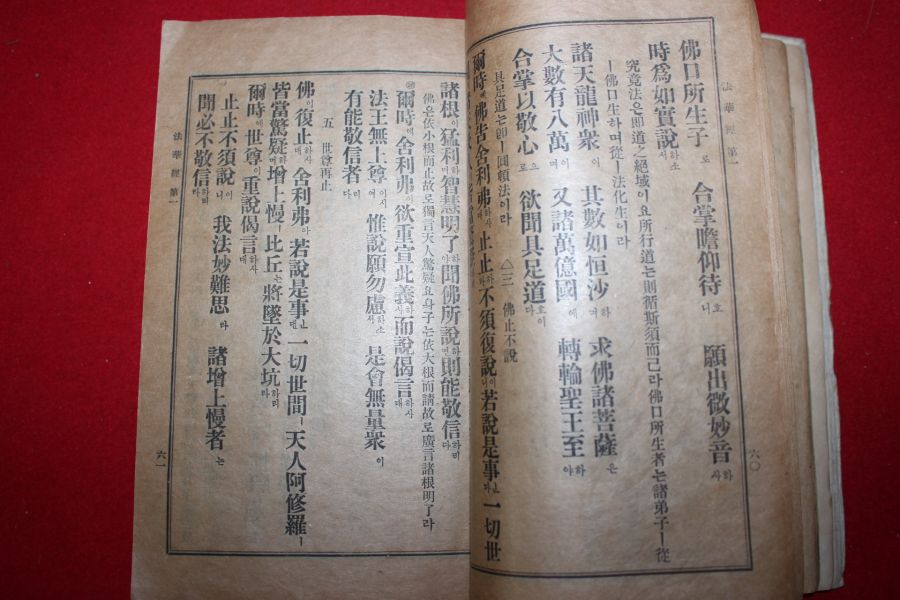 法華經 第一
六〇
佛口所生子로 合掌瞻仰待호니 願出微妙音하사
時爲如實說하소서
究竟法은 即道之絕域이요 所行道는 則循斯須而已라 佛口所生者는 諸弟子ㅣ 從
佛口生하며 從法化生이라
諸天龍神衆이 其數如恒沙하며 求佛諸菩薩은
大數有八萬이며 又諸萬億國에 轉輪聖王至하야
合掌以敬心으로 欲聞具足道호이다
具足道는 即一圓頓法이라 △三 佛止不說
爾時에 佛告舍利弗하사대 止止하라 不須復說이니 若說是事면 一切世
諸根이 猛利하며 智慧明了하야 聞佛所說하면 則能敬信하리다
佛은 依小根而止故로 獨言天人驚疑요 身子는 依大根而請故로 廣言諸根明了라
爾時에 舍利弗이 欲重宣此義하사 而說偈言하사대
法王無上尊이시여 惟說願勿慮하소서 是會無量衆이
有能敬信者니이다
五 世尊再止
佛이 復止하사대 舍利弗아 若說是事면 一切世間ㅣ 天人阿修羅ㅣ
皆當驚疑하며 增上慢ㅣ 比丘는 將墜於大坑하리라
爾時에 世尊이 重說偈言하사대
止止不須說이니 我法妙難思라 諸增上慢者는
聞必不敬信하리라
法華經 第一
六一